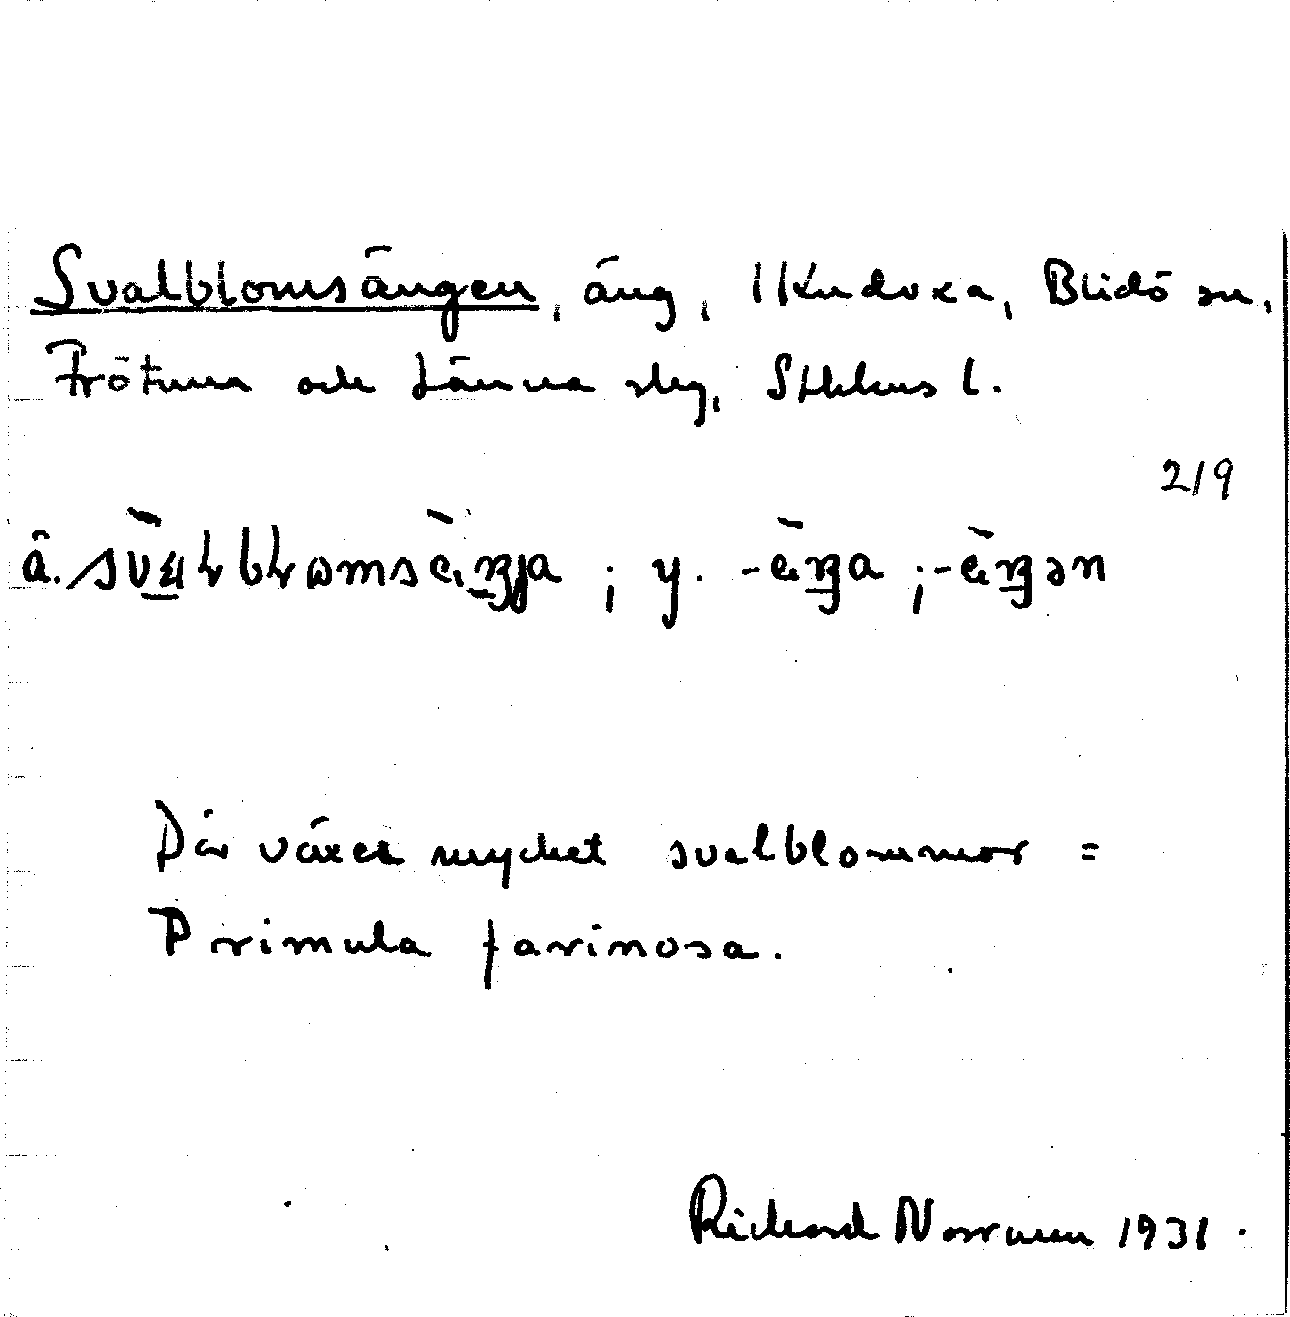 Svalblomsängen, äng, Kudoxa, Blidö sn,
Frötuna och Länna slg, Sthlms l.
219
Där växer mycket svalblommor =
Primula farinosa.
Richard Norrman 1931.